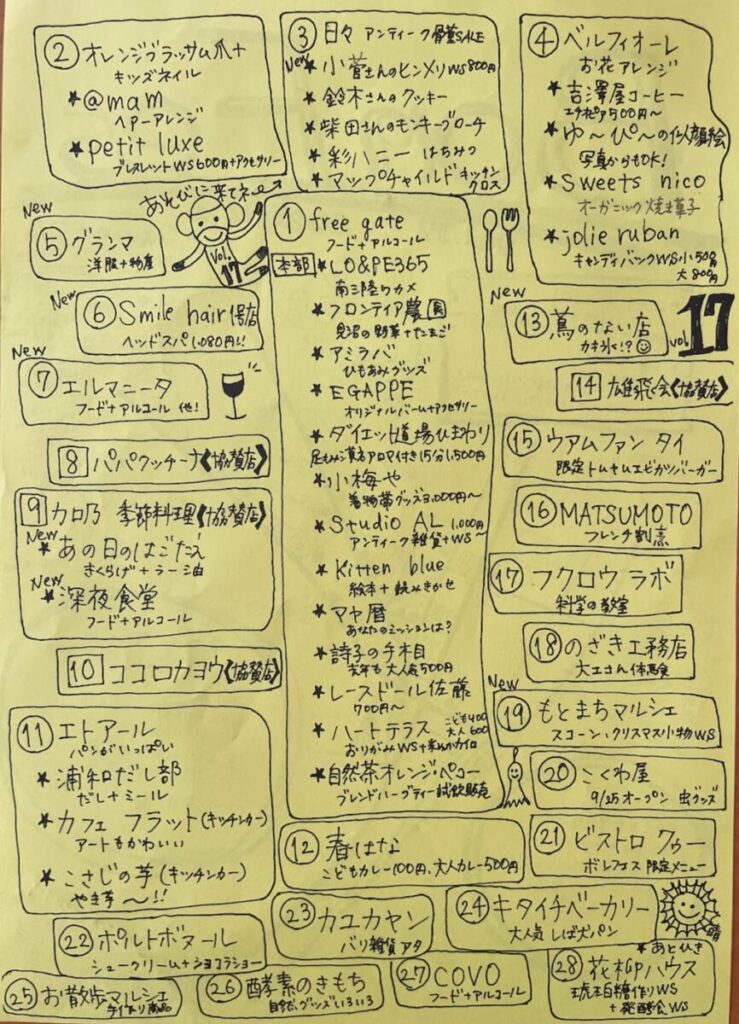 ② オレンジブラッサム爪+
キッズネイル
★ @mam
ヘアーアレンジ
★ petit luxe
ブレスレットWS600円+アクセサリー
③ 日々 アンティーク骨董SALE
New ★ 小菅さんのヒンメリWS800円
★ 鈴木さんのクッキー
★ 柴田さんのモンキーブローチ
★ 彩ハニー はちみつ
★ マップチャイルド キッチン
クロス
④ ベルフィオーレ
お花アレンジ
★ 吉澤屋コーヒー
エチオピア500円〜
★ ゆ〜ぴ〜の似顔絵
写真からもOK!
★ Sweets nico
オーガニック焼き菓子
★ jolie ruban
キャンディバックWS小500円
大800円
あそびに来てネ〜
vol.
17
New
⑤ グランマ
洋服+物産
New
⑥ Smile hair 1号店
ヘッドスパ1,080円!!
New
⑦ エルマニータ
フード+アルコール 他!
8 パパクッチーナ《協賛店》
9 カロ乃 季節料理《協賛店》
New ★ あの日のはごたえ
きくらげ+ラー油
New ★ 深夜食堂
フード+アルコール
10 ココロカヨウ《協賛店》
⑪ エトアール
パンがいっぱい
★ 浦和だし部
だし+ミール
★ カフェ フラット(キッチンカー)
アートもかわいい
★ こさじの芋(キッチンカー)
やき芋〜!!
① free gate
フード+アルコール
本部 ★ LO&PE365
南三陸ワカメ
★ フロンティア農園
見沼の野菜+たまご
★ アミラバ
ひもあみグッズ
★ EGAPPE
オリジナルバーム+アクセサリー
★ ダイエット道場ひまわり
足もみ漢方アロマ付き15分1,500円
★ 小梅や
着物帯グッズ3,000円〜
★ Studio AL 1,000円〜
アンティーク雑貨+WS
★ Kitten blue
絵本+読みきかせ
★ マヤ暦
あなたのミッションは?
★ 詩子の手相
去年も大人気500円
★ レースドール佐藤
700円〜
★ ハートテラス こども400
大人600
おりがみWS+まんかイロ
★ 自然茶オレンジ・ペコー
ブレンドハーブティー試飲販売
⑫ 春はな
こどもカレー100円、大人カレー500円
New
⑬ 蔦のない店
カキ氷!?
vol 17
14 雄飛会《協賛店》
⑮ ウアムファン タイ
限定トムヤムエビカツバーガー
⑯ MATSUMOTO
フレンチ割烹
⑰ フクロウ ラボ
科学の教室
⑱ のざき工務店
大工さん体験
New
⑲ もとまちマルシェ
スコーン、クリスマス小物WS
⑳ こくわ屋
9/25オープン 虫グッズ
㉑ ビストロ クゥー
ボレフェス限定メニュー
㉒ ポルトボヌール
シュークリーム+ショコラショー
㉓ カユカヤン
バリ雑貨アタ
㉔ キタイチベーカリー
大人気 しば犬パン
晴
㉕ お散歩マルシェ
手作り商品
㉖ 酵素のきもち
自然グッズいろいろ
㉗ COVO
フード+アルコール
★ あとひき
㉘ 花柳ハウス
琥珀糖作りWS
+発酵食WS